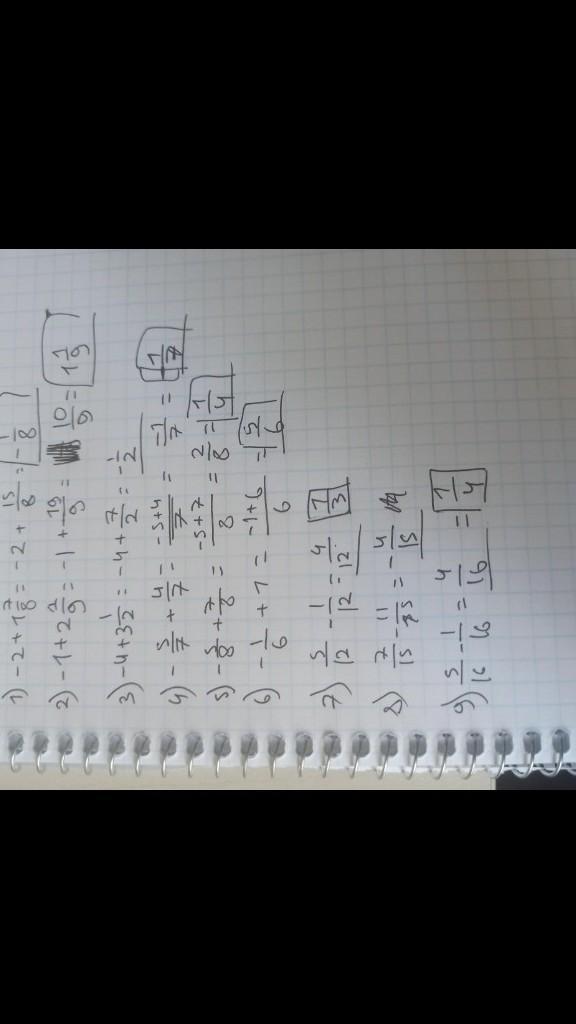 1) -2+1 7/8 = -2 + 15/8 = -1/8
2) -1+2 2/9 = -1 + 19/9 = 10/9 = 1 1/9
3) -4+3 1/2 = -4 + 7/2 = -1/2
4) -5/7 + 4/7 = -5+4/7 = -1/7 = 1/7
5) -5/8 + 7/8 = -5+7/8 = 2/8 = 1/4
6) -1/6 + 1 = -1+6/6 = 5/6
7) 5/12 - 1/12 = 4/12 1/3
8) 7/15 - 11/15 = -4/15
9) 5/16 - 1/16 = 4/16 = 1/4